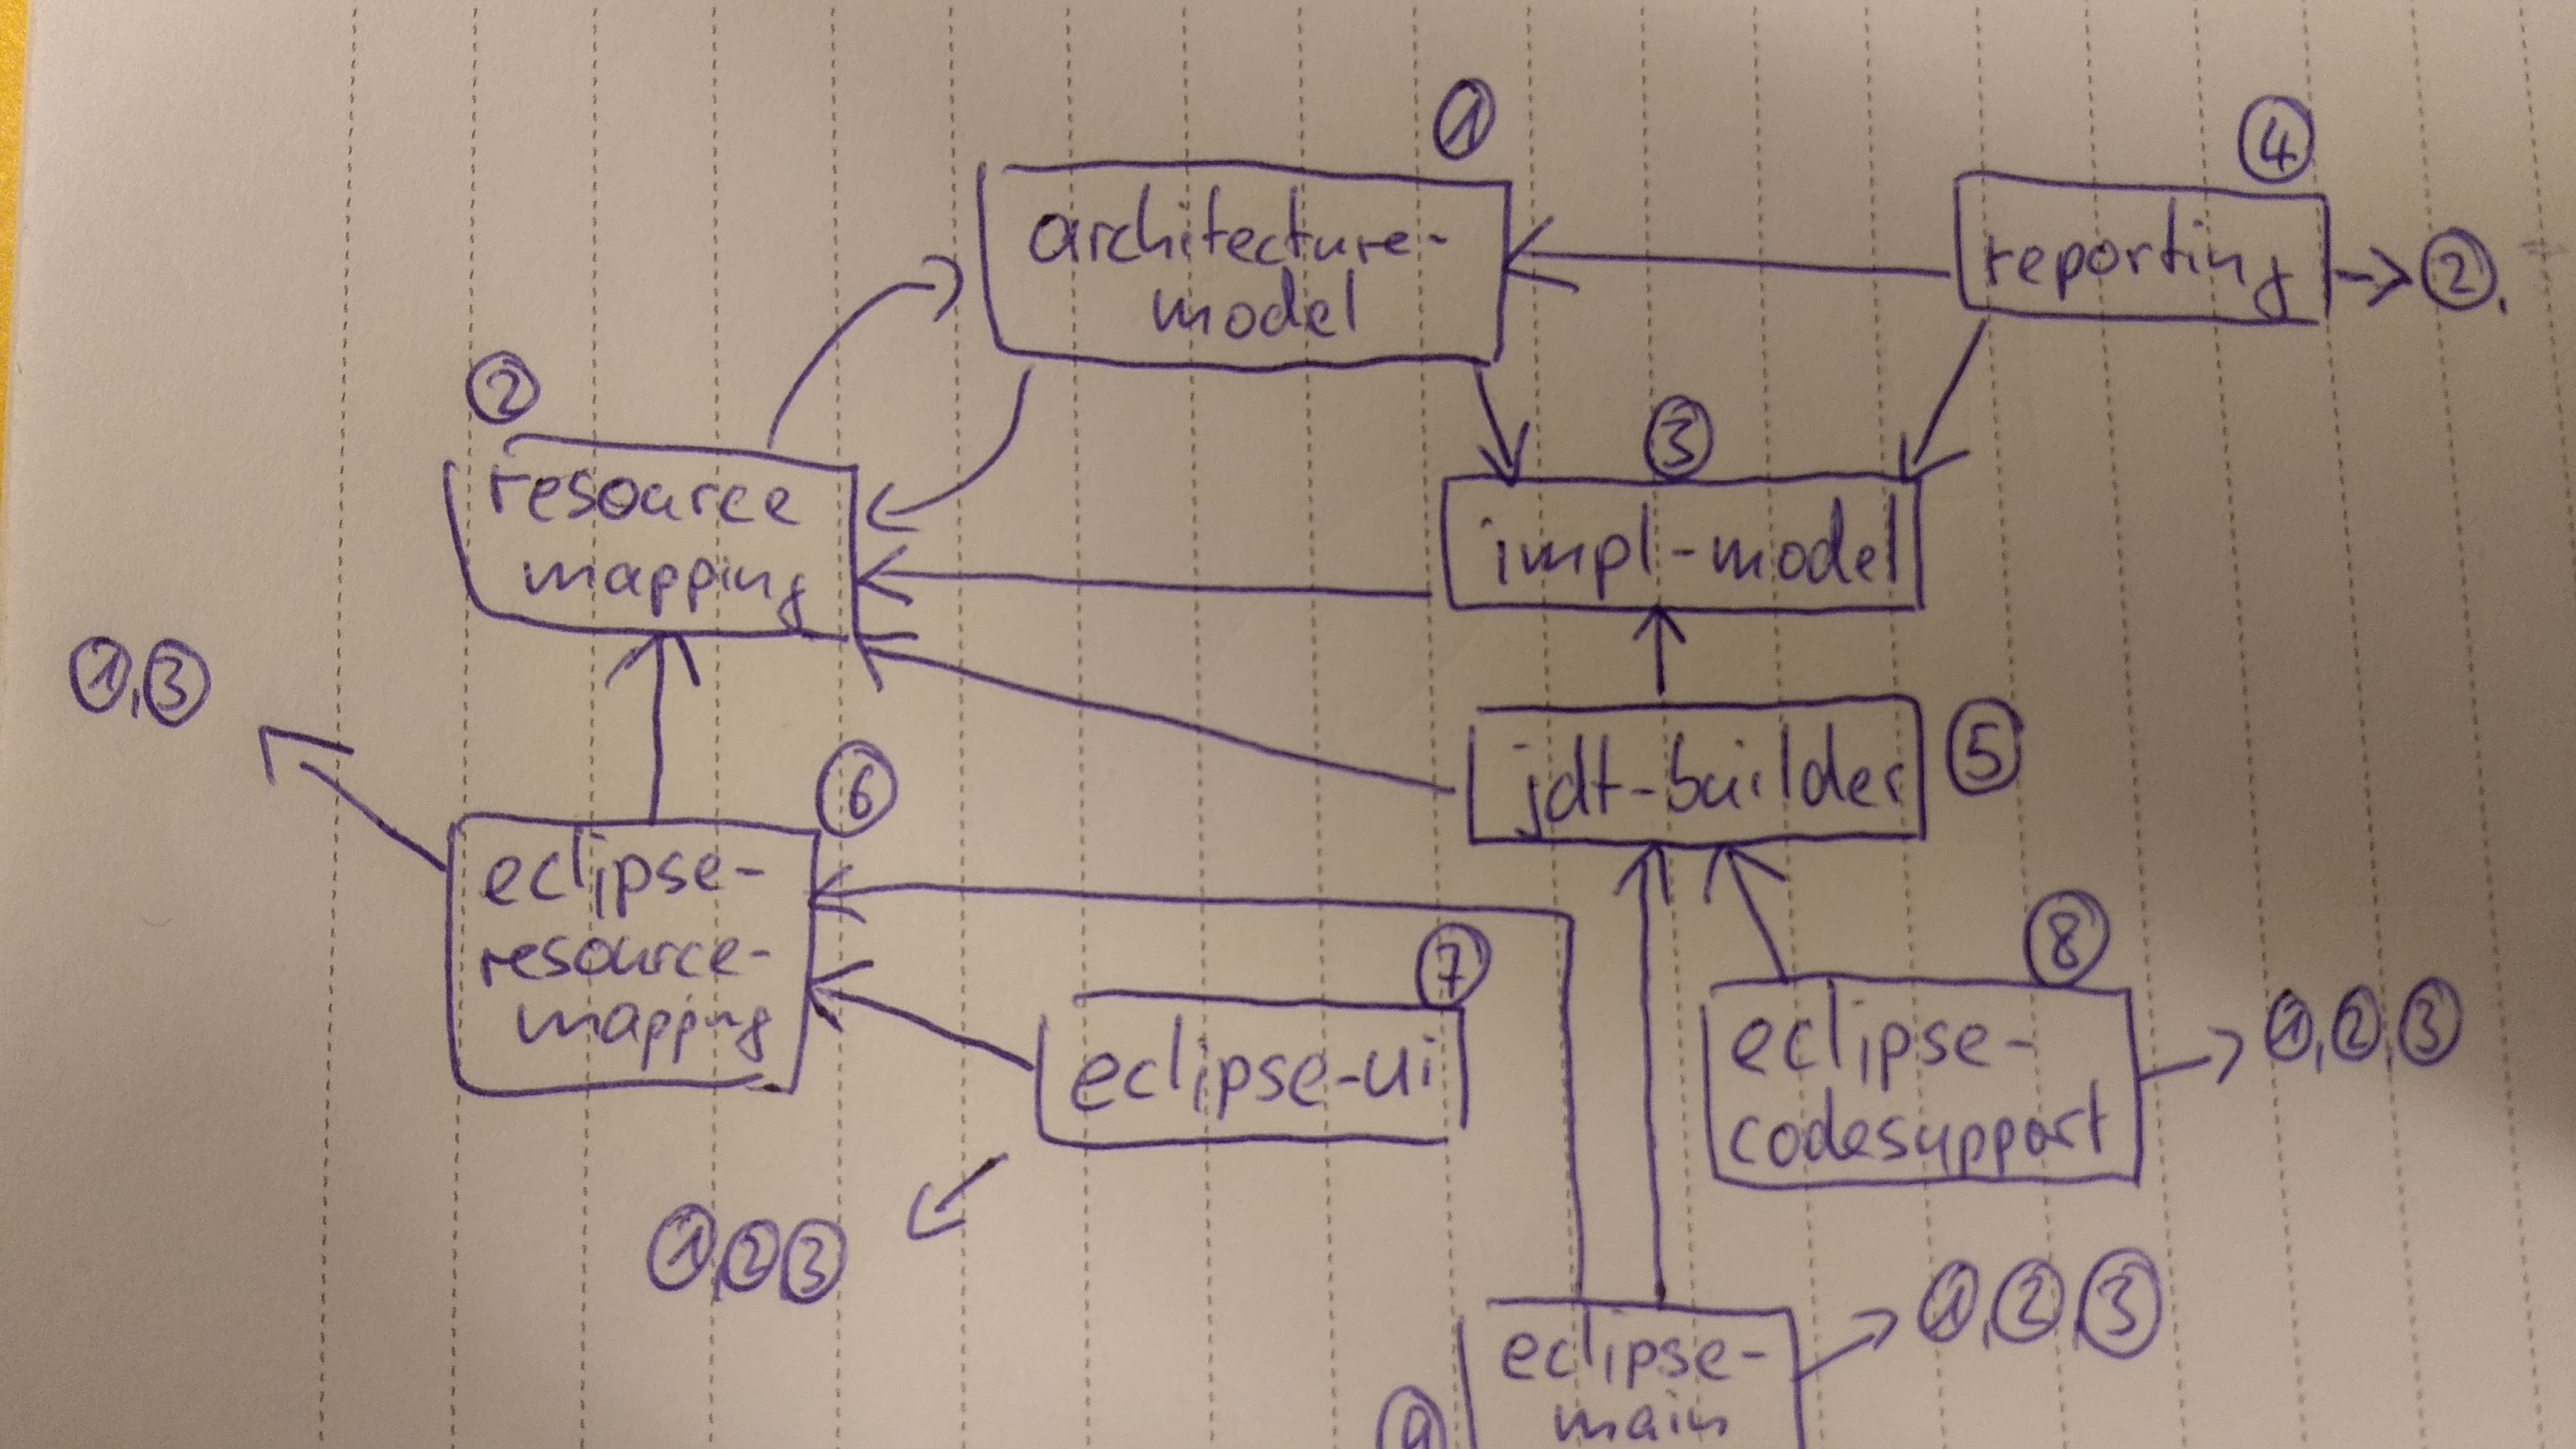 ①
architecture-
model
④
reporting
②.
②
resource
mapping
③
impl-model
①,③
jdt-builder
⑤
⑥
eclipse-
resource-
mapping
⑦
eclipse-ui
①,②③
⑧
eclipse-
codesupport
①,②,③
⑨
eclipse-
main
①,②,③